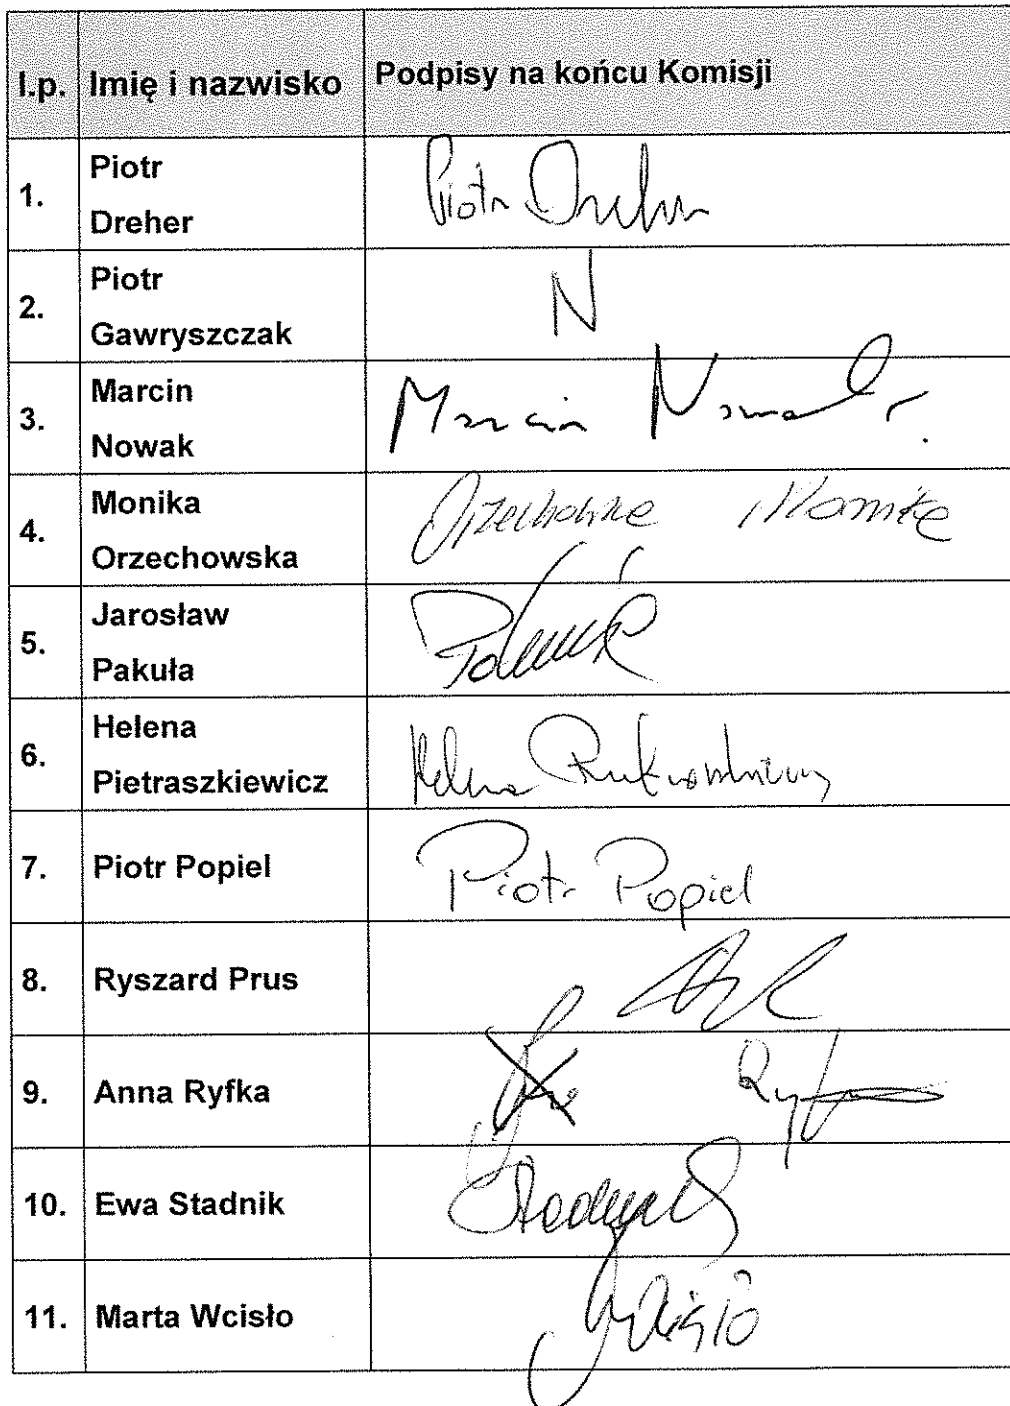 l.p. Imię i nazwisko Podpisy na końcu Komisji
1. Piotr Dreher Piotr Dreher
2. Piotr Gawryszczak N
3. Marcin Nowak Marcin Nowak
4. Monika Orzechowska Orzechowska Monika
5. Jarosław Pakuła
6. Helena Pietraszkiewicz Helena
7. Piotr Popiel Piotr Popiel
8. Ryszard Prus
9. Anna Ryfka Ryfka
10. Ewa Stadnik Stadnik
11. Marta Wcisło Wcisło